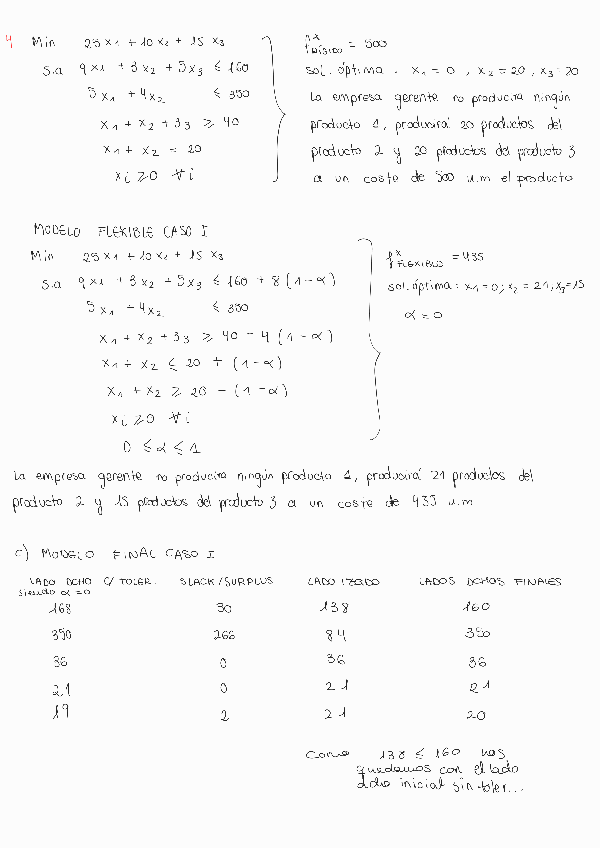 4 Min 25 x1 + 10 x2 + 15 x3
s.a 9 x1 + 3 x2 + 5 x3 ≤ 160
5 x1 + 4 x2 ≤ 350
x1 + x2 + 3 3 ≥ 40
x1 + x2 = 20
xi ≥ 0 ∀ i
f* RÍGIDO = 500
sol. óptima : x1 = 0 , x2 = 20 , x3 = 20
La empresa gerente no producirá ningún
producto 1, producirá 20 productos del
producto 2 y 20 productos del producto 3
a un coste de 500 u.m el producto
MODELO FLEXIBLE CASO I
Min 25 x1 + 10 x2 + 15 x3
s.a 9 x1 + 3 x2 + 5 x3 ≤ 160 + 8 (1 - α)
5 x1 + 4 x2 ≤ 350
x1 + x2 + 3 3 ≥ 40 - 4 (1 - α)
x1 + x2 ≤ 20 + (1 - α)
x1 + x2 ≥ 20 - (1 - α)
xi ≥ 0 ∀ i
0 ≤ α ≤ 1
f* FLEXIBLE = 435
sol. óptima : x1 = 0 ; x2 = 21 , x3 = 15
α = 0
La empresa gerente no producirá ningún producto 1, producirá 21 productos del
producto 2 y 15 productos del producto 3 a un coste de 435 u.m
c) MODELO FINAL CASO I
LADO DCHO C/ TOLER. SLACK/SURPLUS LADO IZQDO LADOS DCHOS FINALES
siendo α = 0
168 30 138 160
350 266 84 350
36 0 36 36
21 0 21 21
19 2 21 20
Como 138 ≤ 160 nos
quedamos con el lado
dcho inicial sin toler...